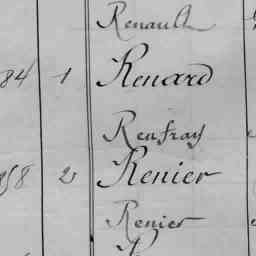 Renault
84 1 Renard
Renfray
58 2 Renier
Renier